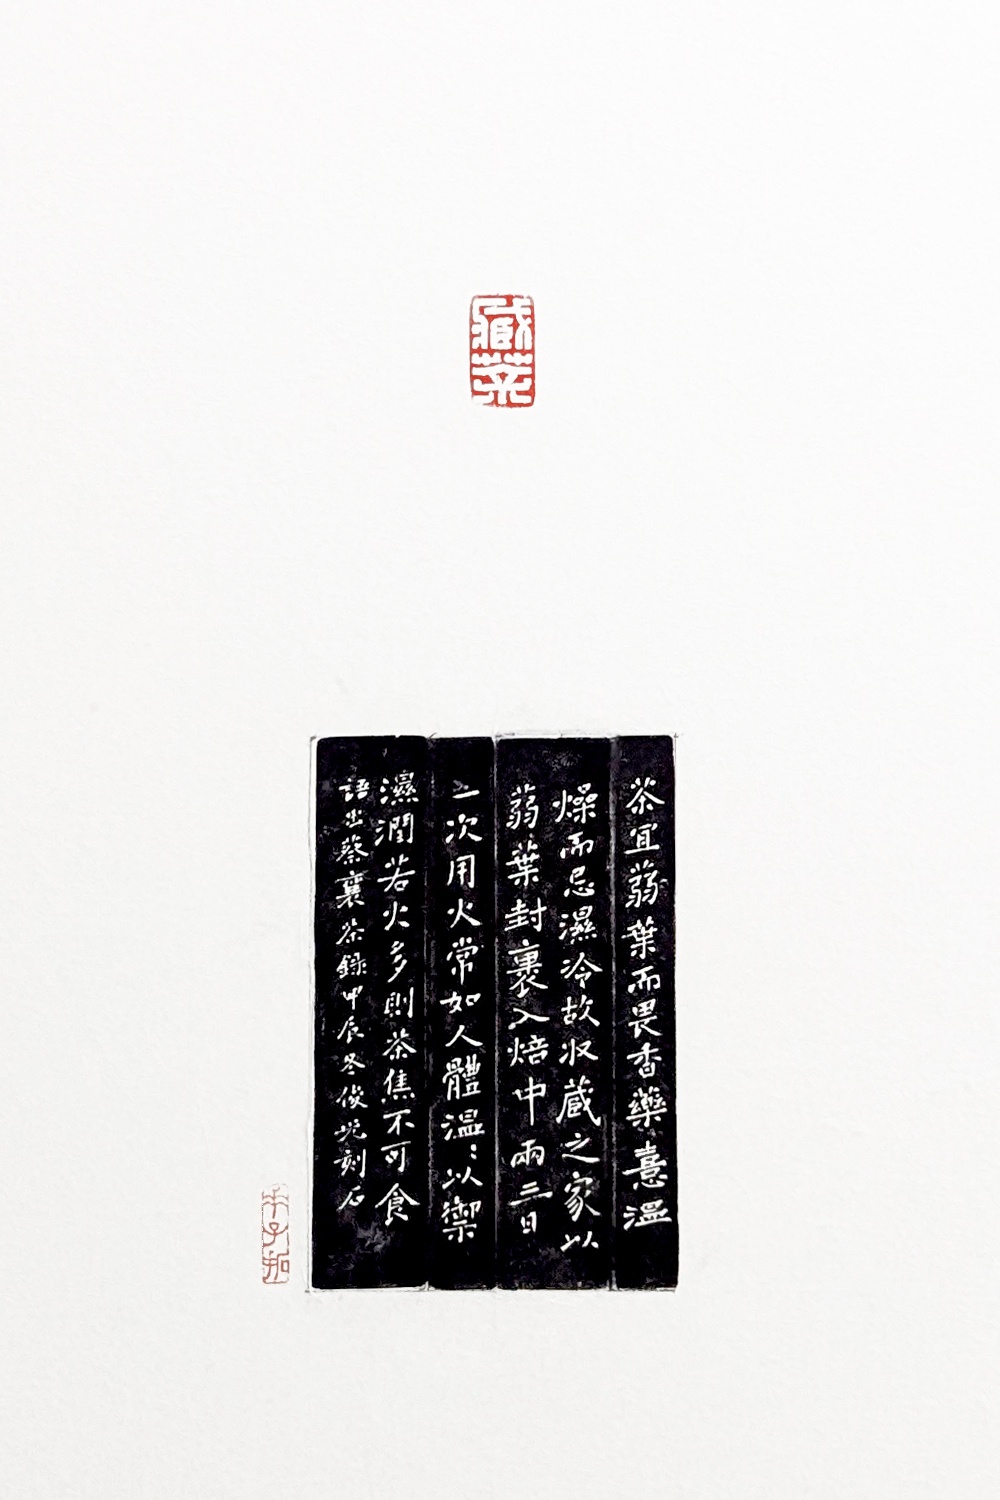 藏茶
茶宜蒻葉而畏香藥憙溫
燥而忌濕冷故收藏之家以
蒻葉封裹入焙中兩三日
一次用火常如人體溫〻以禦
濕潤若火多則茶焦不可食
語出蔡襄茶錄甲辰冬俊刻石